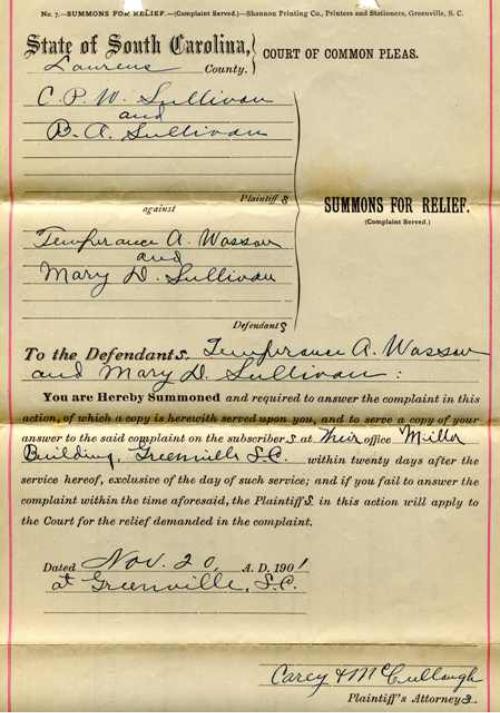 No. 7.—SUMMONS FOR RELIEF.—(Complaint Served.)—Shannon Printing Co., Printers and Stationers, Greenville, S. C.
State of South Carolina,
COURT OF COMMON PLEAS.
Laurens County.
C. P. W. Sullivan
and
B. A. Sullivan
Plaintiff s
against
SUMMONS FOR RELIEF.
(Complaint Served.)
Temperance A. Wasson
and
Mary D. Sullivan
Defendant s
To the Defendant s. Temperance A. Wasson
and Mary D. Sullivan :
You are Hereby Summoned and required to answer the complaint in this
action, of which a copy is herewith served upon you, and to serve a copy of your
answer to the said complaint on the subscriber s at their office Miller
Building, Greenville S.C. within twenty days after the
service hereof, exclusive of the day of such service; and if you fail to answer the
complaint within the time aforesaid, the Plaintiff s in this action will apply to
the Court for the relief demanded in the complaint.
Dated Nov. 20, A. D. 1901
at Greenville, S.C.
Carey & McCullough
Plaintiff's Attorney s